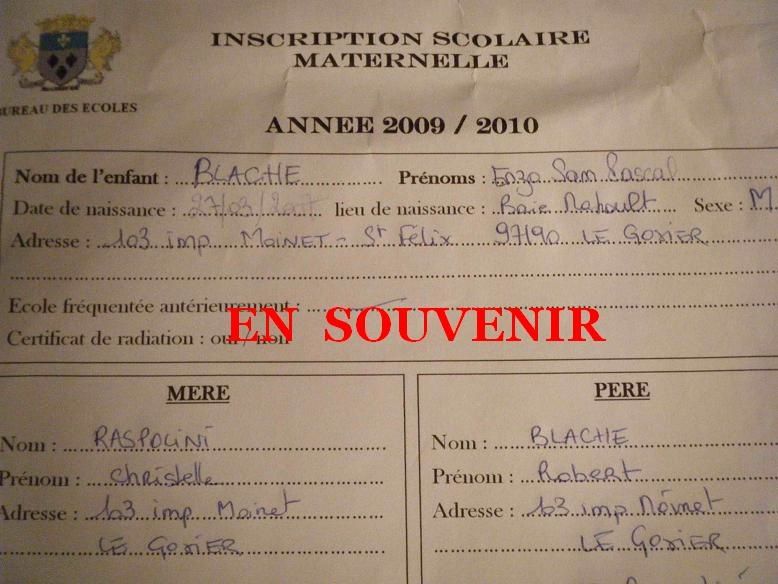 INSCRIPTION SCOLAIRE
MATERNELLE
BUREAU DES ECOLES
ANNEE 2009 / 2010
Nom de l'enfant : BLACHE Prénoms : Enzo Sam Pascal
Date de naissance : 27/03/2007 lieu de naissance : Baie Mahault Sexe : M
Adresse : 103 imp MOINET - St Félix 97190 LE GOSIER
Ecole fréquentée antérieurement :
EN SOUVENIR
Certificat de radiation : oui / non
MERE PERE
Nom : RASPOLINI Nom : BLACHE
Prénom : Christelle Prénom : Robert
Adresse : 103 imp Moinet Adresse : 103 imp
LE GOSIER LE GOSIER